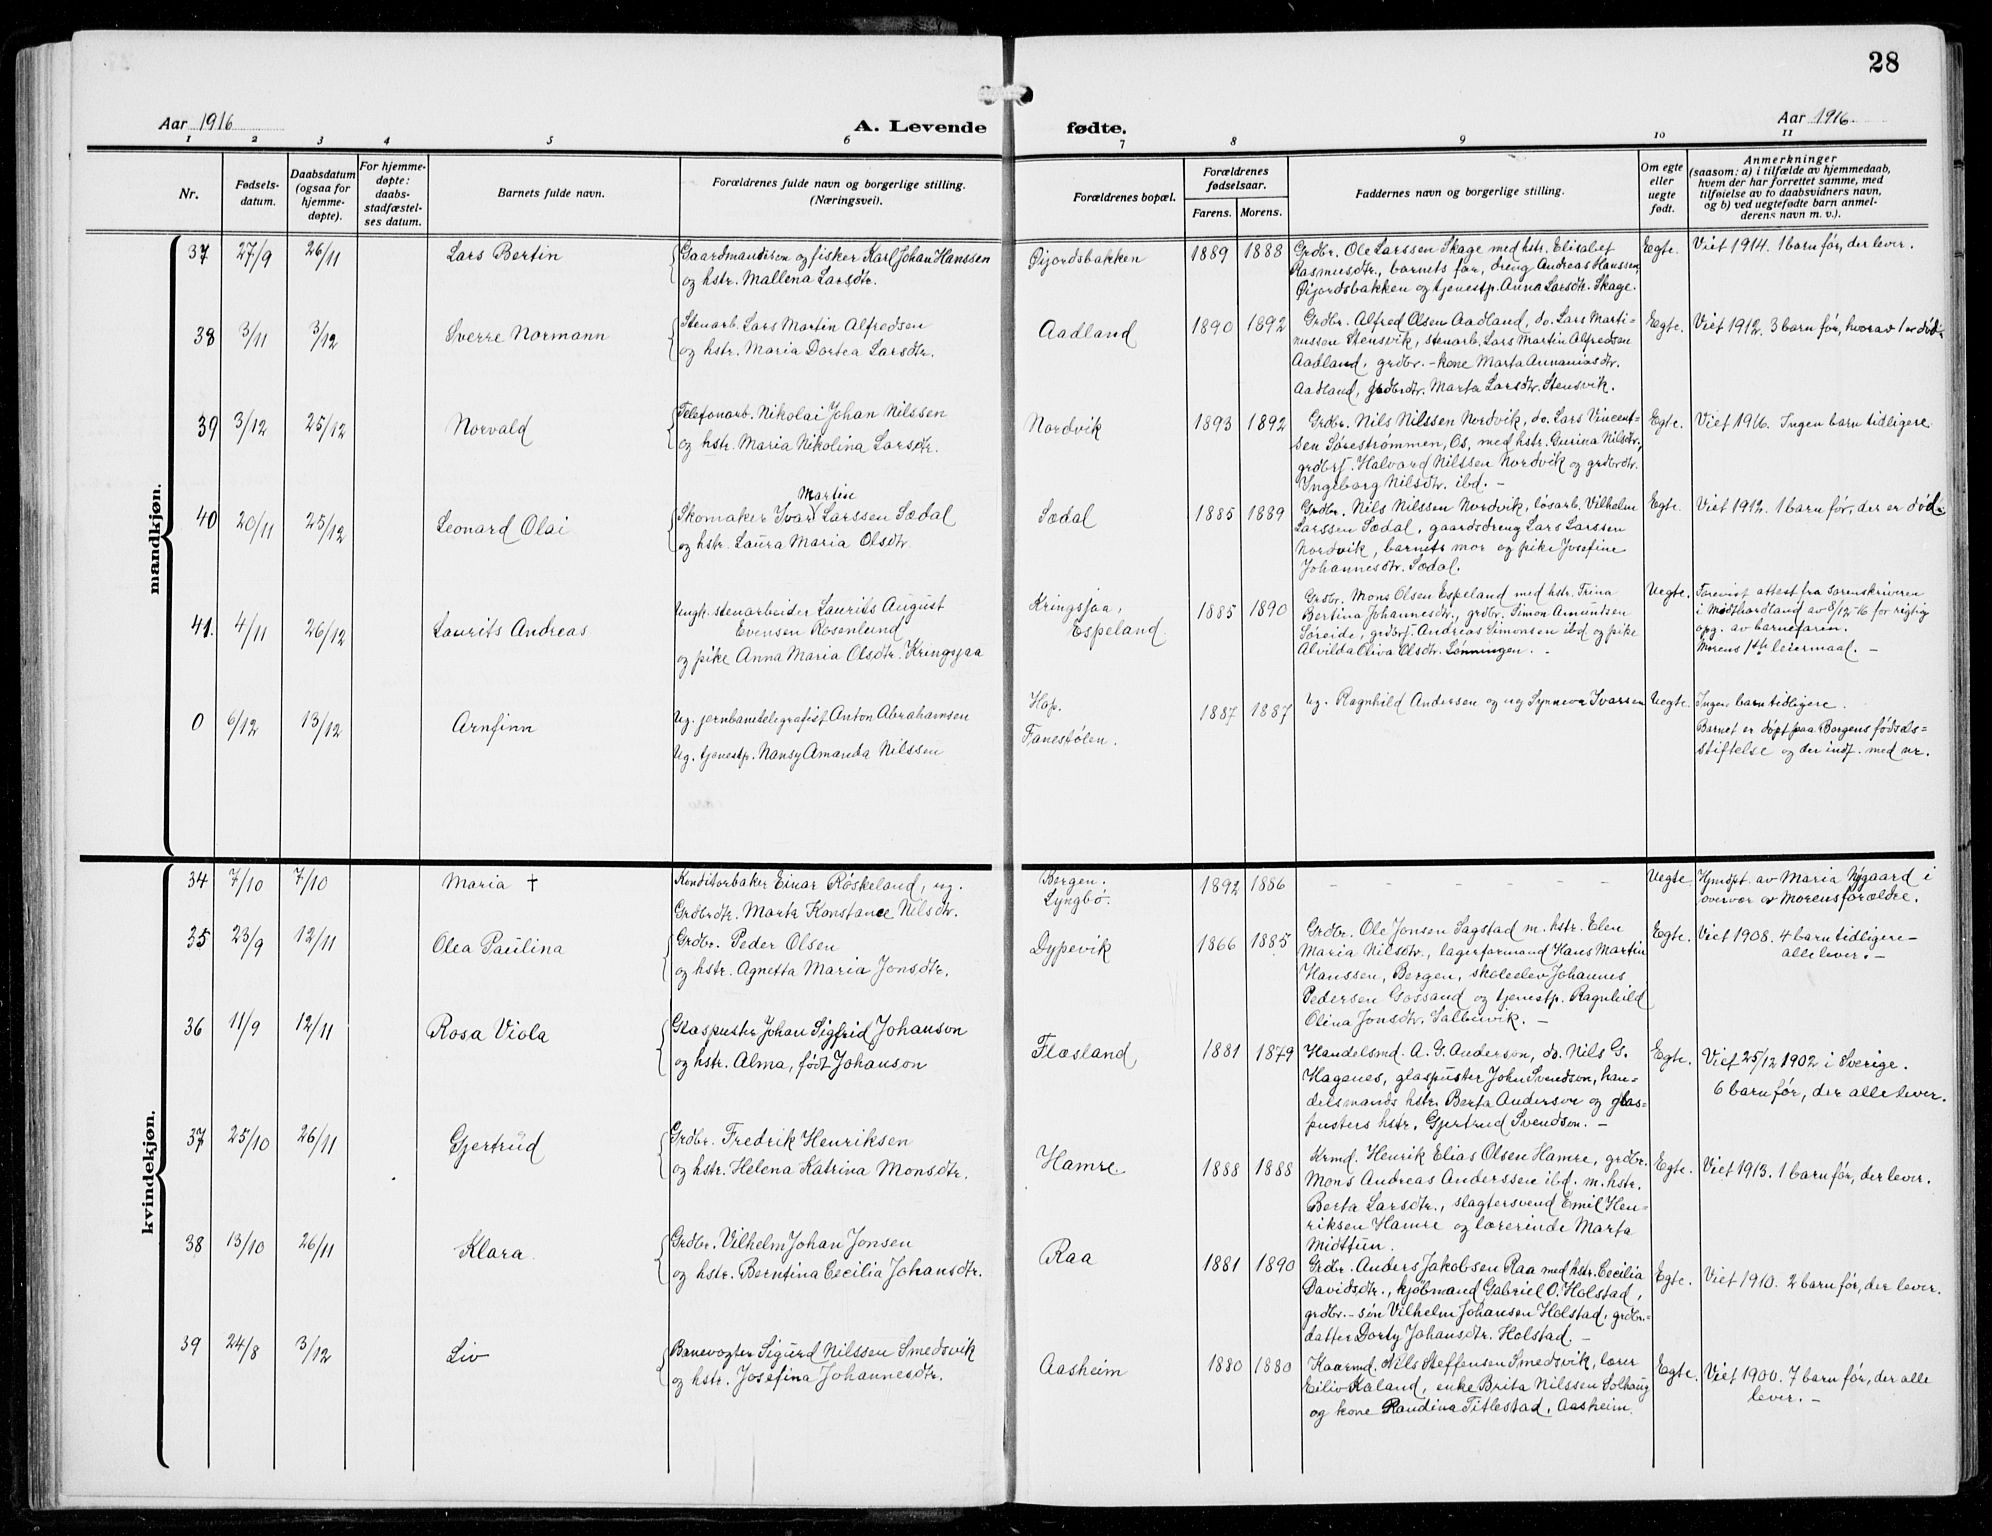 28
Aar 1916
A. Levende
fødte.
Aar 1916.
1 2 3 4 5 6 7 8 9 10 11
Nr.
Fødsels-
datum.
Daabsdatum
(ogsaa for
hjemme-
døpte).
For hjemme-
døpte:
daabs-
stadfæstel-
ses datum.
Barnets fulde navn.
Forældrenes fulde navn og borgerlige stilling.
(Næringsvei).
Forældrenes bopæl.
Forældrenes
fødselsaar.
Farens. Morens.
Faddernes navn og borgerlige stilling.
Om egte
eller
uegte
født.
Anmerkninger
(saasom: a) i tilfælde av hjemmedaab,
hvem der har forrettet samme, med
tilføielse av to daabsvidners navn,
og b) ved uegtefødte barn anmel-
derens navn m. v.).
mandkjøn.
37 27/9 26/11 Lars Bertin
Gaardmandssøn og fisker Karl Johan Hanssen
og hstr. Mallena Larsdtr.
Øijordsbakken 1889 1888
Grdbr. Ole Larssen Skage med hstr. Elisabet
Rasmusdtr., barnets far, dreng Andreas Hanssen,
Øijordsbakken og tjenestp. Anna Larsdtr. Skage.
Egte. Viet 1914. 1 barn før, der lever.
38 3/11 3/12 Sverre Normann
Stenarb. Lars Martin Alfredsen
og hstr. Maria Dortea Larsdtr.
Aadland 1890 1892
Grdbr. Alfred Olsen Aadland, do. Lars Marti-
nussen Stensvik, stenarb. Lars Martin Alfredsen
Aadland, grdbr.-kone Marta Annaniasdtr.
Aadland, grdbrdtr. Marta Larsdtr. Stensvik.
Egte. Viet 1912. 3 barn før, hvorav 1 er død.
39 3/12 25/12 Norvald
Telefonarb. Nikolai Johan Nilssen
og hstr. Maria Nikolina Larsdtr.
Nordvik 1893 1892
Grdbr. Nils Nilssen Nordvik, do. Lars Vincent-
sen Sørestrømmen, Os, med hstr. Gurina Nilsdtr.,
grdbrs. Halvard Nilssen Nordvik og grdbrdtr.
Ingeborg Nilsdtr. ibd. -
Egte. Viet 1916. Ingen barn tidligere.
40 20/11 25/12 Leonard Olai
Martin
Skomaker Ivar Larssen Sædal
og hstr. Laura Maria Olsdtr.
Sædal 1885 1889
Grdbr. Nils Nilssen Nordvik, løsarb. Vilhelm
Larssen Sædal, gaardsdreng Lars Larssen
Nordvik, barnets mor og pike Josefine
Johannesdtr. Sædal.
Egte. Viet 1912. 1 barn før, der er død.
41. 4/11 26/12 Laurits Andreas
Ungk. stenarbeider Laurits August
Evensen Rosenlund
og pike Anna Maria Olsdtr. Kringsjaa
Kringsjaa,
Espeland. 1885 1890
Grdbr. Mons Olsen Espeland med hstr. Trina
Bertina Johannesdtr., grdbr. Simon Amundsen
Søreide, grdbrs. Andreas Simonsen ibd og pike
Alvilda Oliva Olsdtr. Lønningen. -
Uegte. Forevist attest fra sorenskriveren
i Midthordland av 8/12-16 for rigtig
opg. av barnefaren.
Morens 1ste leiermaal. -
0 6/12 13/12 Arnfinn
Ug. jernbanetelegrafist Anton Abrahamsen
Ug. tjenestp. Nansy Amanda Nilssen
Hop.
Fanestølen. 1887 1887
Ug. Ragnhild Andersen og ug Synneva Ivarsen
Uegte. Ingen barn tidligere.
Barnet er døpt paa Bergens fødsels-
stiftelse og der indf. med nr.
kvindekjøn.
34 7/10 7/10 Maria †
Konditorbaker Einar Røskeland, ug.
Grdbrdtr. Marta Konstance Nilsdtr.
Bergen.
Lyngbø. 1892 1886
- - - - - - -
Uegte Hjmdpt. av Maria Nygaard i
overvær av Morens forældre.
35 23/9 12/11 Olea Paulina
Grdbr. Peder Olsen
og hstr. Agnetta Maria Jonsdtr.
Dypevik 1866 1885
Grdbr. Ole Jonsen Sagstad m. hstr. Elen
Maria Nilsdtr., lagerformand Hans Martin
Hanssen, Bergen, skoleelev Johannes
Pedersen Gossand og tjenestp. Ragnhild
Olina Jonsdtr. Salbuvik. -
Egte. Viet 1908. 4 barn tidligere -
alle lever. -
36 11/9 12/11 Rosa Viola
Glaspuster Johan Sigfrid Johanson
og hstr. Alma, født Johanson
Flesland 1881 1879
Handelsmd. A. G. Anderson, do. Nils G.
Hagenes, glaspuster John Svendson, han-
delsmands hstr. Berta Anderson og glas-
pusters hstr. Gjertrud Svendson. -
Egte. Viet 25/12 1902 i Sverige.
6 barn før, der alle lever.
37 25/10 26/11 Gjertrud
Grdbr. Fredrik Henriksen
og hstr. Helena Katrina Monsdtr.
Hamre 1888 1888
Krmd. Henrik Elias Olsen Hamre, grdbr.
Mons Andreas Anderssen ibd. m. hstr.
Berta Larsdtr., slagtersvend Emil Hen-
riksen Hamre og lærerinde Marta
Midttun.
Egte. Viet 1913. 1 barn før, der lever.
38 13/10 26/11 Klara.
Grdbr. Vilhelm Johan Jonsen
og hstr. Berntina Cecilia Johansdtr.
Raa 1881 1890
Grdbr. Anders Jakobsen Raa med hstr. Cecilia
Davidsdtr., kjøbmand Gabriel O. Holstad,
grdbr.-søn Vilhelm Johansen Holstad, grdbr.-
datter Dorty Johansdtr. Holstad. -
Egte. Viet 1910. 2 barn før, der lever.
39 24/8 3/12 Liv
Banevogter Sigurd Nilssen Smedsvik
og hstr. Josefina Johannesdtr.
Aasheim 1880 1880
Kaarmd. Nils Steffensen Smedsvik, lærer
Eiliv Kaland, enke Brita Nilssen Solhaug
og kone Randina Titlestad, Aasheim.
Egte. Viet 1900. 7 barn før, der alle
lever. -